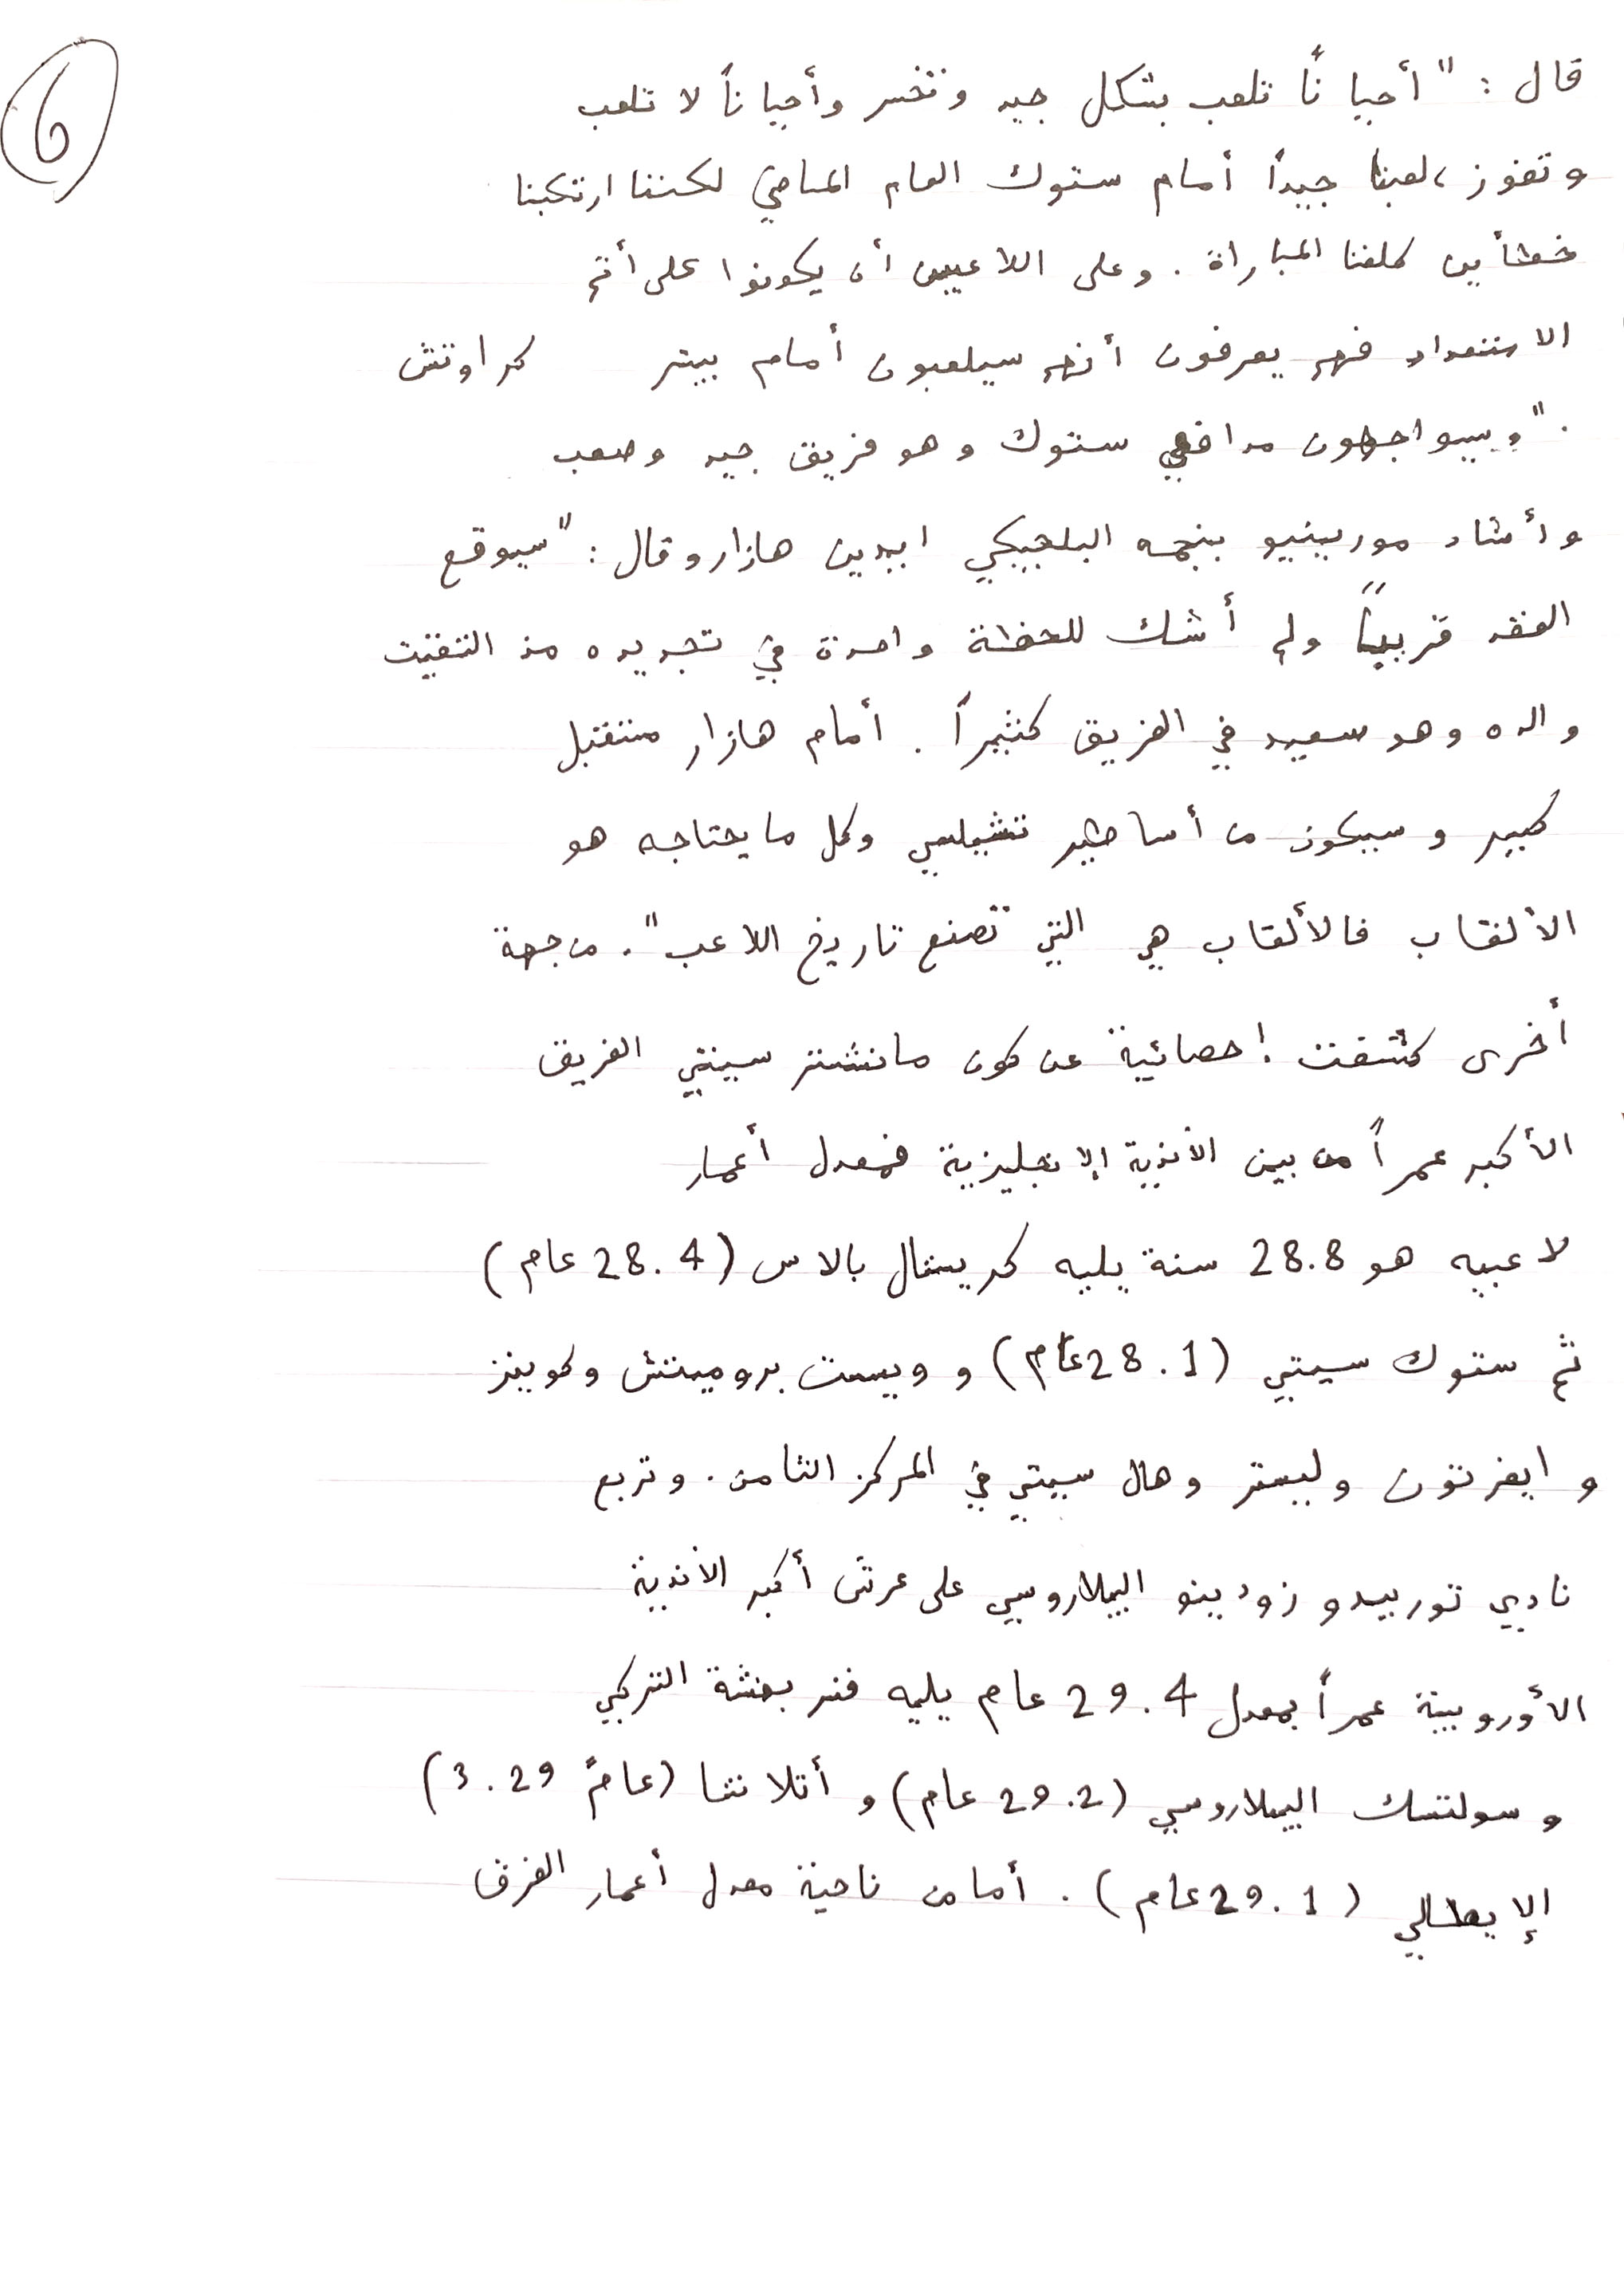 6
قال : " أحياناً تلعب بشكل جيد وتخسر وأحياناً لا تلعب
وتفوز ، لعبنا جيداً أمام ستوك العام الماضي لكننا ارتكبنا
خطأين كلفنا المباراة . وعلى اللاعبين أن يكونوا على أتم
الاستعداد فهم يعرفون أنهم سيلعبون أمام بيتر كراوتش
. " وسيواجهون مدافعي ستوك وهو فريق جيد وصعب
وأشاد مورينيو بنجمه البلجيكي ايدين هازار وقال : " سيوقع
العقد قريباً ولم أشك للحظة واحدة في تجديده مذ التقيت
والده وهو سعيد في الفريق كثيراً . أمام هازار مستقبل
كبير وسيكون من أساطير تشيلسي وكل ما يحتاجه هو
الألقاب فالألقاب هي التي تصنع تاريخ اللاعب " . من جهة
أخرى كشفت إحصائية عن كون مانشستر سيتي الفريق
الأكبر عمراً من بين الأندية الإنجليزية فمعدل أعمار
لاعبيه هو 28.8 سنة يليه كريستال بالاس (28.4 عام)
ثم ستوك سيتي (28.1 عام) و ويست بروميتش وكوينز
و ايفرتون وليستر وهال سيتي في المركز الثامن . وتربع
نادي توربيدو زودينو البيلاروسي على عرش أكبر الأندية
الأوروبية عمراً بمعدل 29.4 عام يليه فنربخشة التركي
و سولتسك البيلاروسي (29.2 عام) و أتلانتا (عام 3.29)
الإيطالي (29.1 عام) . أما من ناحية معدل أعمار الفرق